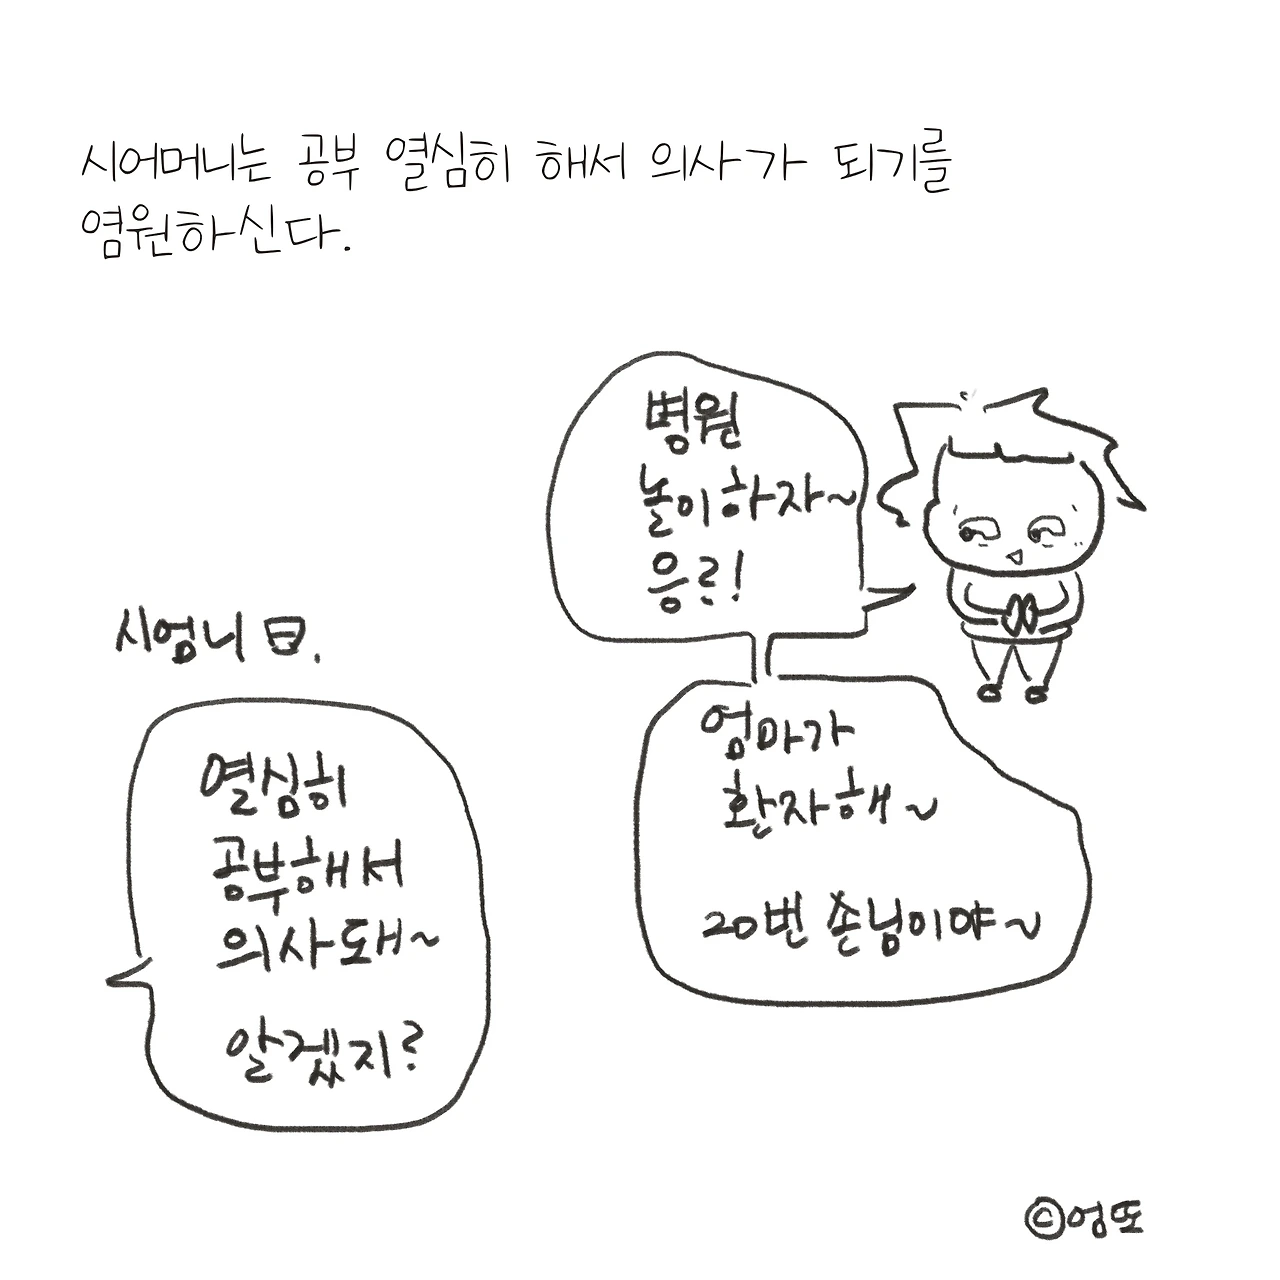 시어머니는 공부 열심히 해서 의사가 되기를
염원하신다.
병원
놀이하자~
응!
시엄니
열심히
공부해서
의사돼~
알겠지?
엄마가
환자해~
20번 손님이야~
©엉또